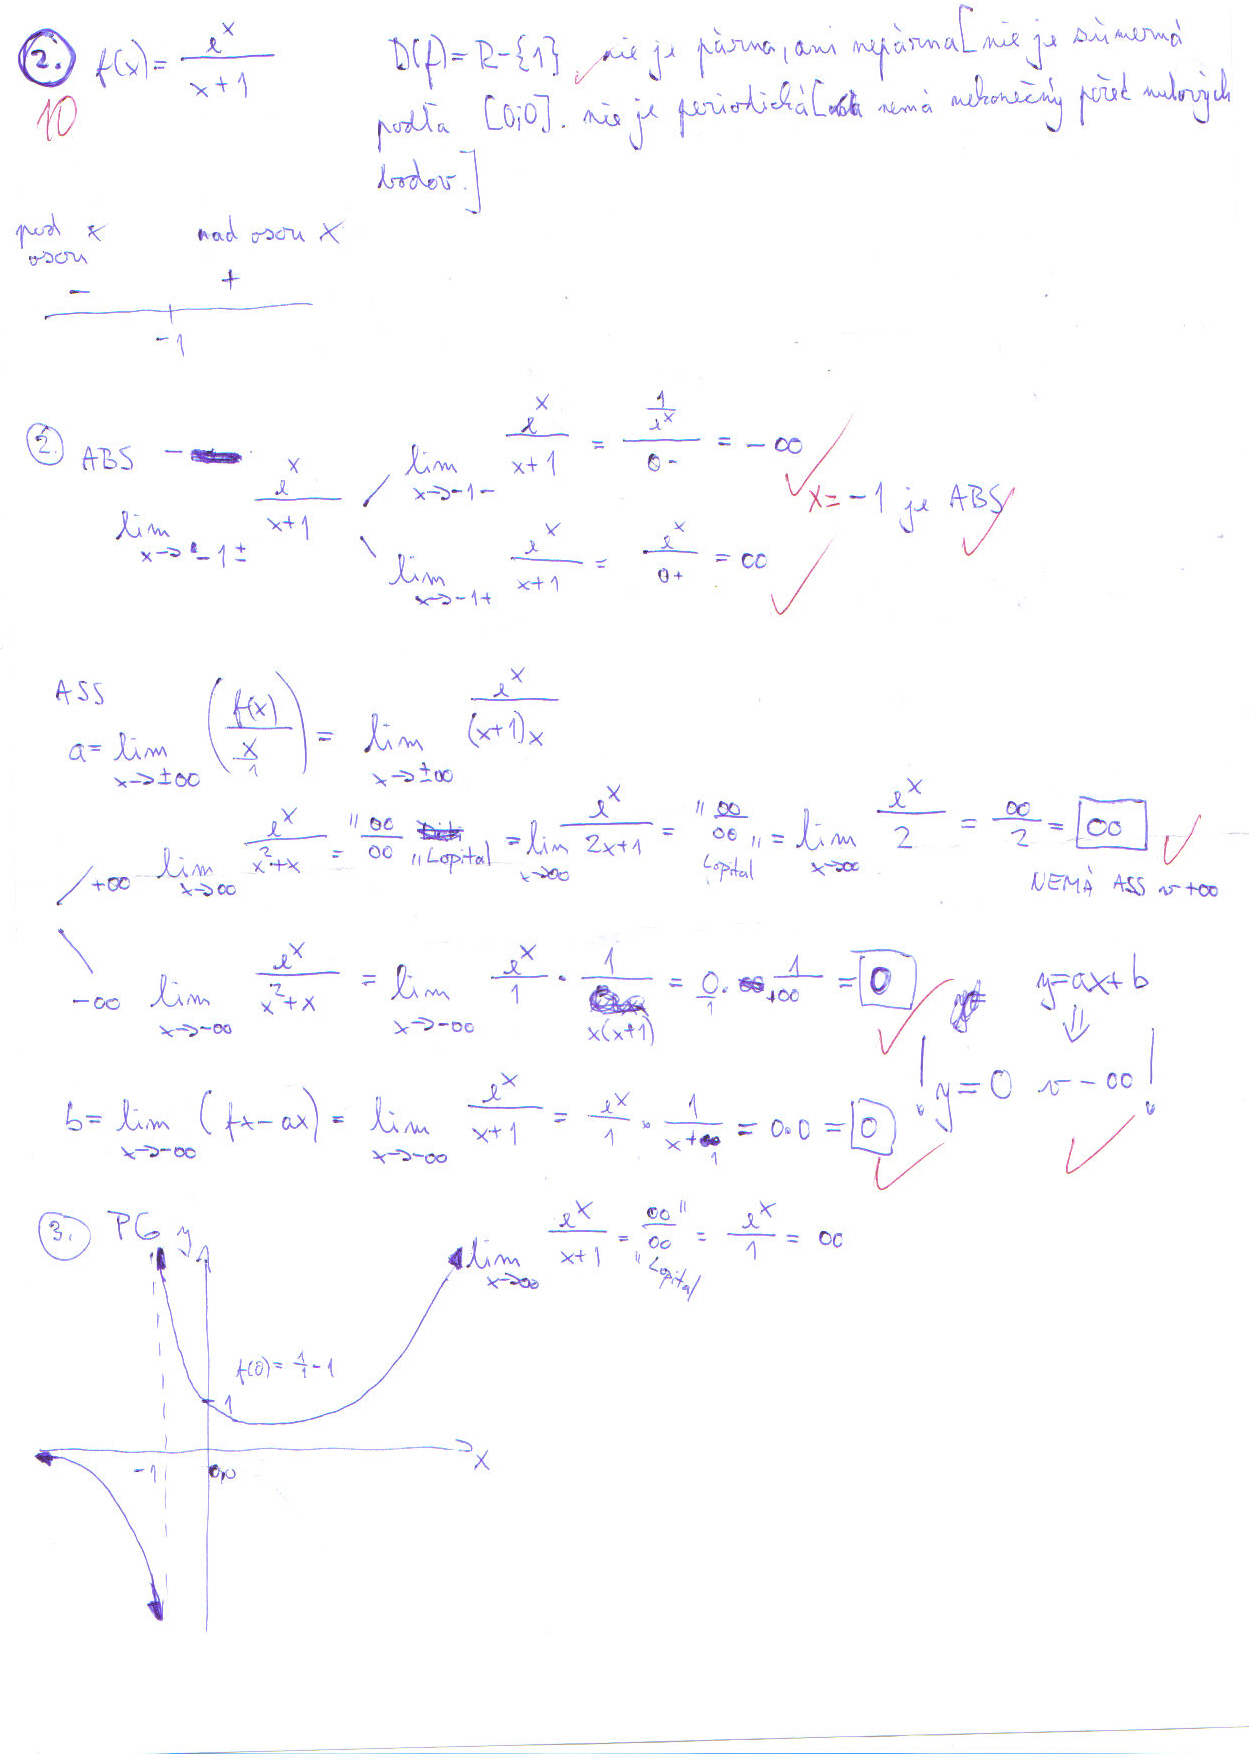 2. f(x) = e^x / (x+1) D(f) = R - {1} nie je párna, ani nepárna [nie je súmerná
10 podľa [0;0]. nie je periodická [ nemá nekonečný počet nulových
bodov.]
pod x nad osou x
osou
- +
-1
2. ABS -
lim x→-1± e^x / (x+1)
lim x→-1- e^x / (x+1) = (1/e^x) / 0- = -∞
x = -1 je ABS
lim x→-1+ e^x / (x+1) = e^x / 0+ = ∞
ASS
a = lim x→±∞ (f(x) / (x/1)) = lim x→±∞ e^x / (x+1)x
+∞ lim x→∞ e^x / (x²+x) = "∞/∞" Lopital = lim x→∞ e^x / (2x+1) = "∞/∞" Lopital = lim x→∞ e^x / 2 = ∞/2 = ∞
NEMÁ ASS v +∞
-∞ lim x→-∞ e^x / (x²+x) = lim x→-∞ e^x/1 · 1 / x(x+1) = 0/1 · 1/+∞ = 0 y=ax+b
⇓
! y = 0 v -∞ !
b = lim x→-∞ (fx - ax) = lim x→-∞ e^x / (x+1) = e^x/1 · 1 / (x+1) = 0.0 = 0
3. PG y
lim x→∞ e^x / (x+1) = "∞/∞" Lopital = e^x / 1 = ∞
f(0) = 1/1 - 1
1
-1 0,0 x